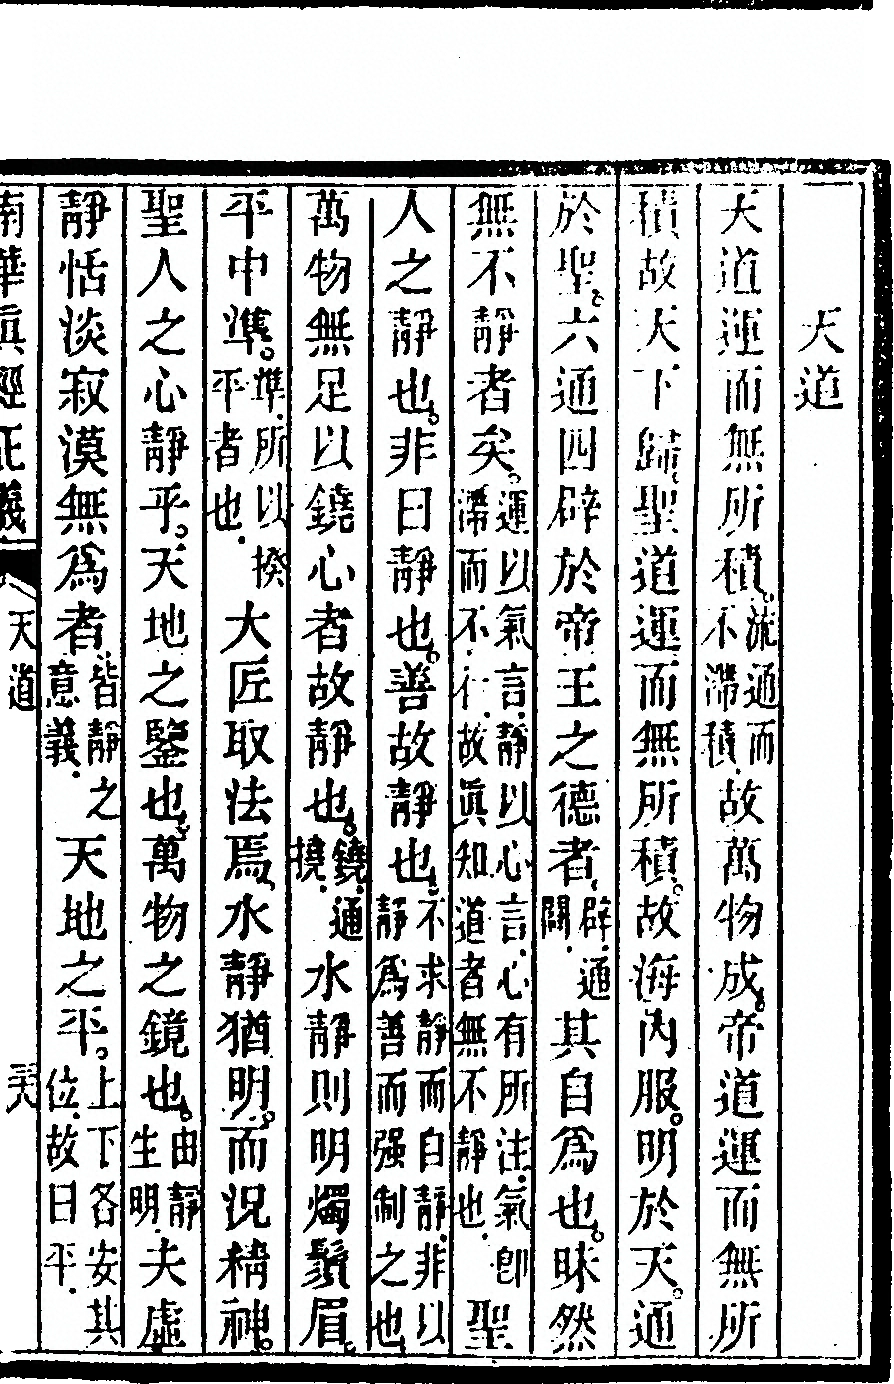 天道
天道運而無所積。流通而不滯積.故萬物成。帝道運而無所
積故天下歸、聖道運而無所積。故海內服。明於天。通
於聖。六通四辟於帝王之德者、辟.通闢.其自爲也。昧然
無不靜者矣。運以氣言.靜以心言.心有所注.氣卽滯而不行.故眞知道者無不靜也.聖
人之靜也。非曰靜也。善故靜也。不求靜而自靜.非以靜爲善而强制之也
萬物無足以鐃心者故靜也。鐃.通撓.水靜則明燭鬚眉。
平中準。準.所以揆平者也.大匠取法焉、水靜猶明。而況精神。
聖人之心靜乎。天地之鑒也。萬物之鏡也。由靜生明.夫虛
靜恬淡寂漠無爲者、皆靜之意義.天地之平。上下各安其位.故曰平.
南華眞經正義 天道